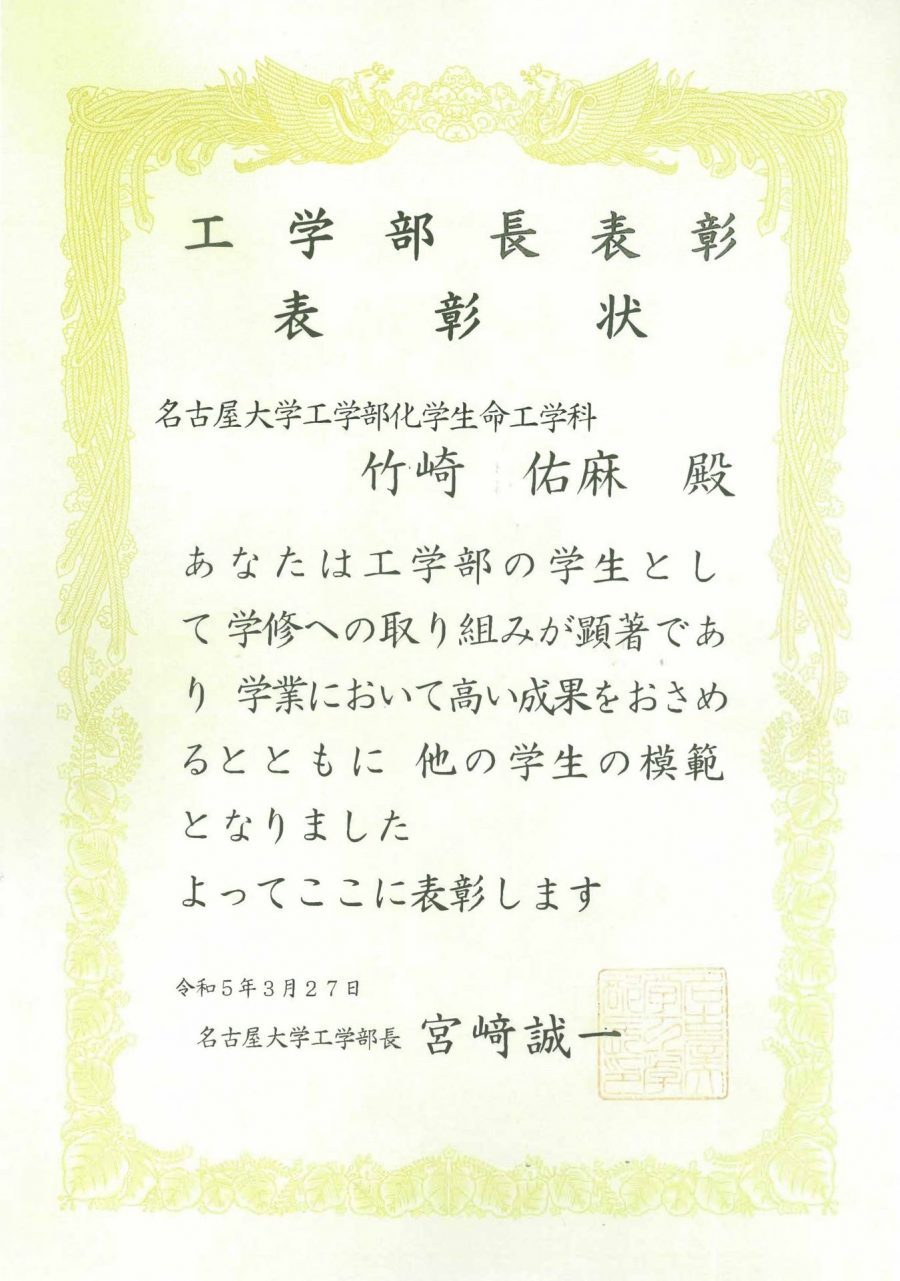 工学部長表彰
表彰状
名古屋大学工学部化学生命工学科
竹崎 佑麻 殿
あなたは工学部の学生とし
て学修への取り組みが顕著であ
り 学業において高い成果をおさめ
るとともに 他の学生の模範
となりました
よってここに表彰します
令和5年3月27日
名古屋大学工学部長 宮﨑誠一